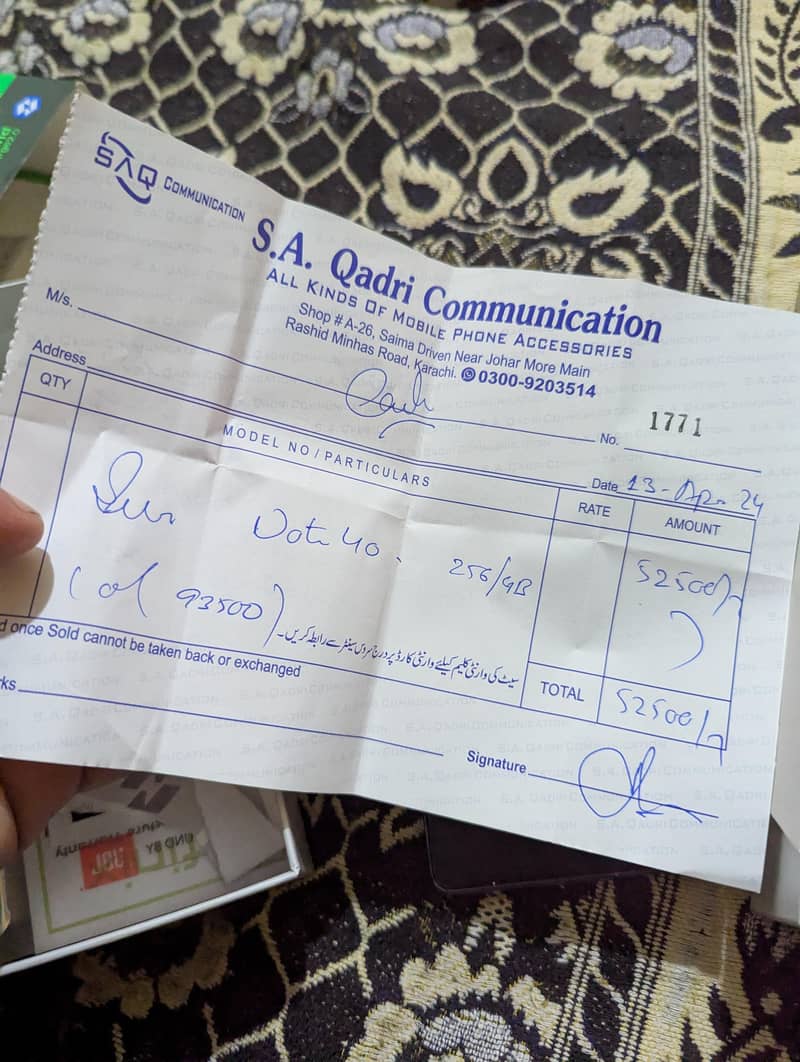 SAQ COMMUNICATION
S.A. Qadri Communication
ALL KINDS OF MOBILE PHONE ACCESSORIES
Shop # A-26, Saima Driven Near Johar More Main
Rashid Minhas Road, Karachi. 0300-9203514
M/s.
No. 1771
Address
Date 13-Apr-24
QTY
MODEL NO / PARTICULARS
RATE
AMOUNT
Note 40. 256/GB
52500/
93500)
سیٹ کی وارنٹی کلیم کیلئے وارنٹی کارڈ پر درج سروس سینٹر سے رابطہ کریں۔
d once Sold cannot be taken back or exchanged
TOTAL
52500/
ks
Signature
JBL